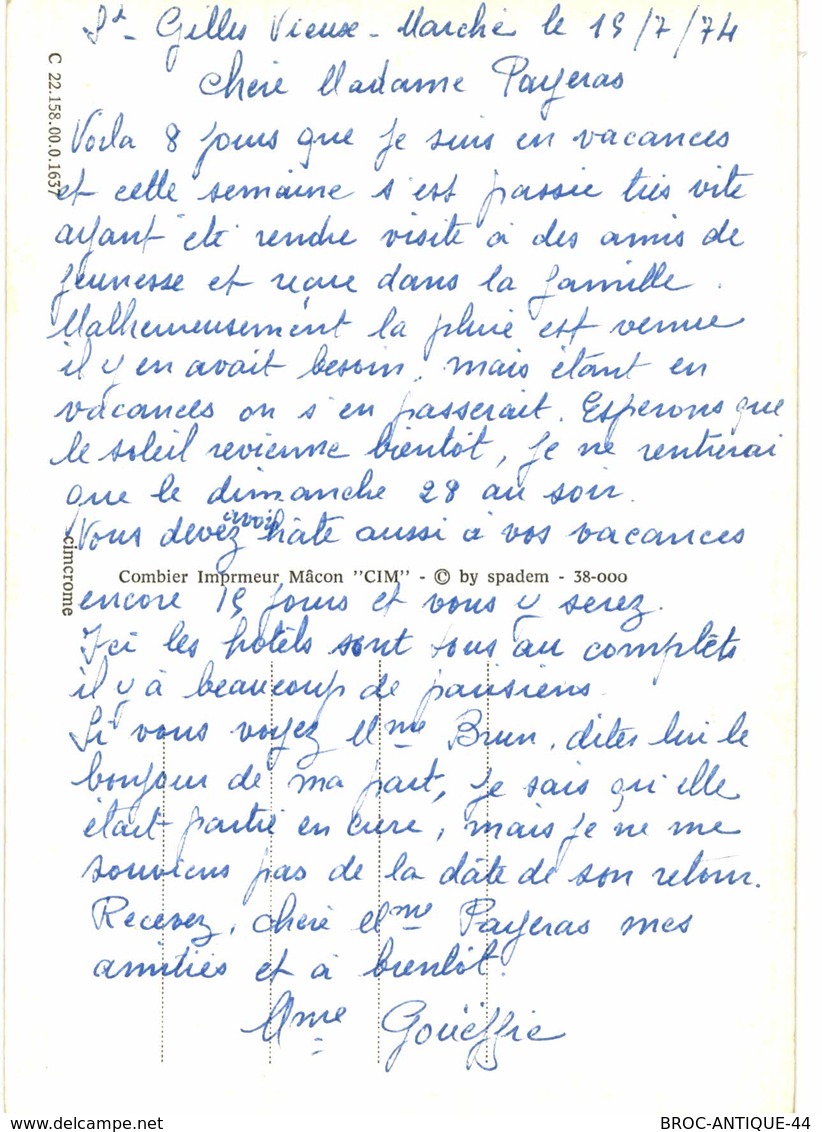 St- Gilles Vieux-Marché le 19/7/74
Chère Madame Payeras
Voila 8 jours que je suis en vacances
et cette semaine s'est passée très vite
ayant été rendre visite à des amis de
jeunesse et reçue dans la famille.
Malheureusement la pluie est venue
il y en avait besoin, mais étant en
vacances on s'en passerait. Esperons que
le soleil revienne bientôt, je ne rentrerai
que le dimanche 28 au soir.
Vous devez avoir hâte aussi à vos vacances
encore 15 jours et vous y serez.
Ici les hôtels sont tous au complets
il y à beaucoup de parisiens.
Si vous voyez Mme Brun, dites lui le
bonjour de ma part, je sais qu'elle
était partie en cure, mais je ne me
souviens pas de la dâte de son retour.
Recevez, chère Mme Payeras mes
amitiés et à bientôt.
Mme Gouëffic
C 22.158.00.0.1637
cimcrome
Combier Imprmeur Mâcon "CIM" - © by spadem - 38-000
BROC-ANTIQUE-44